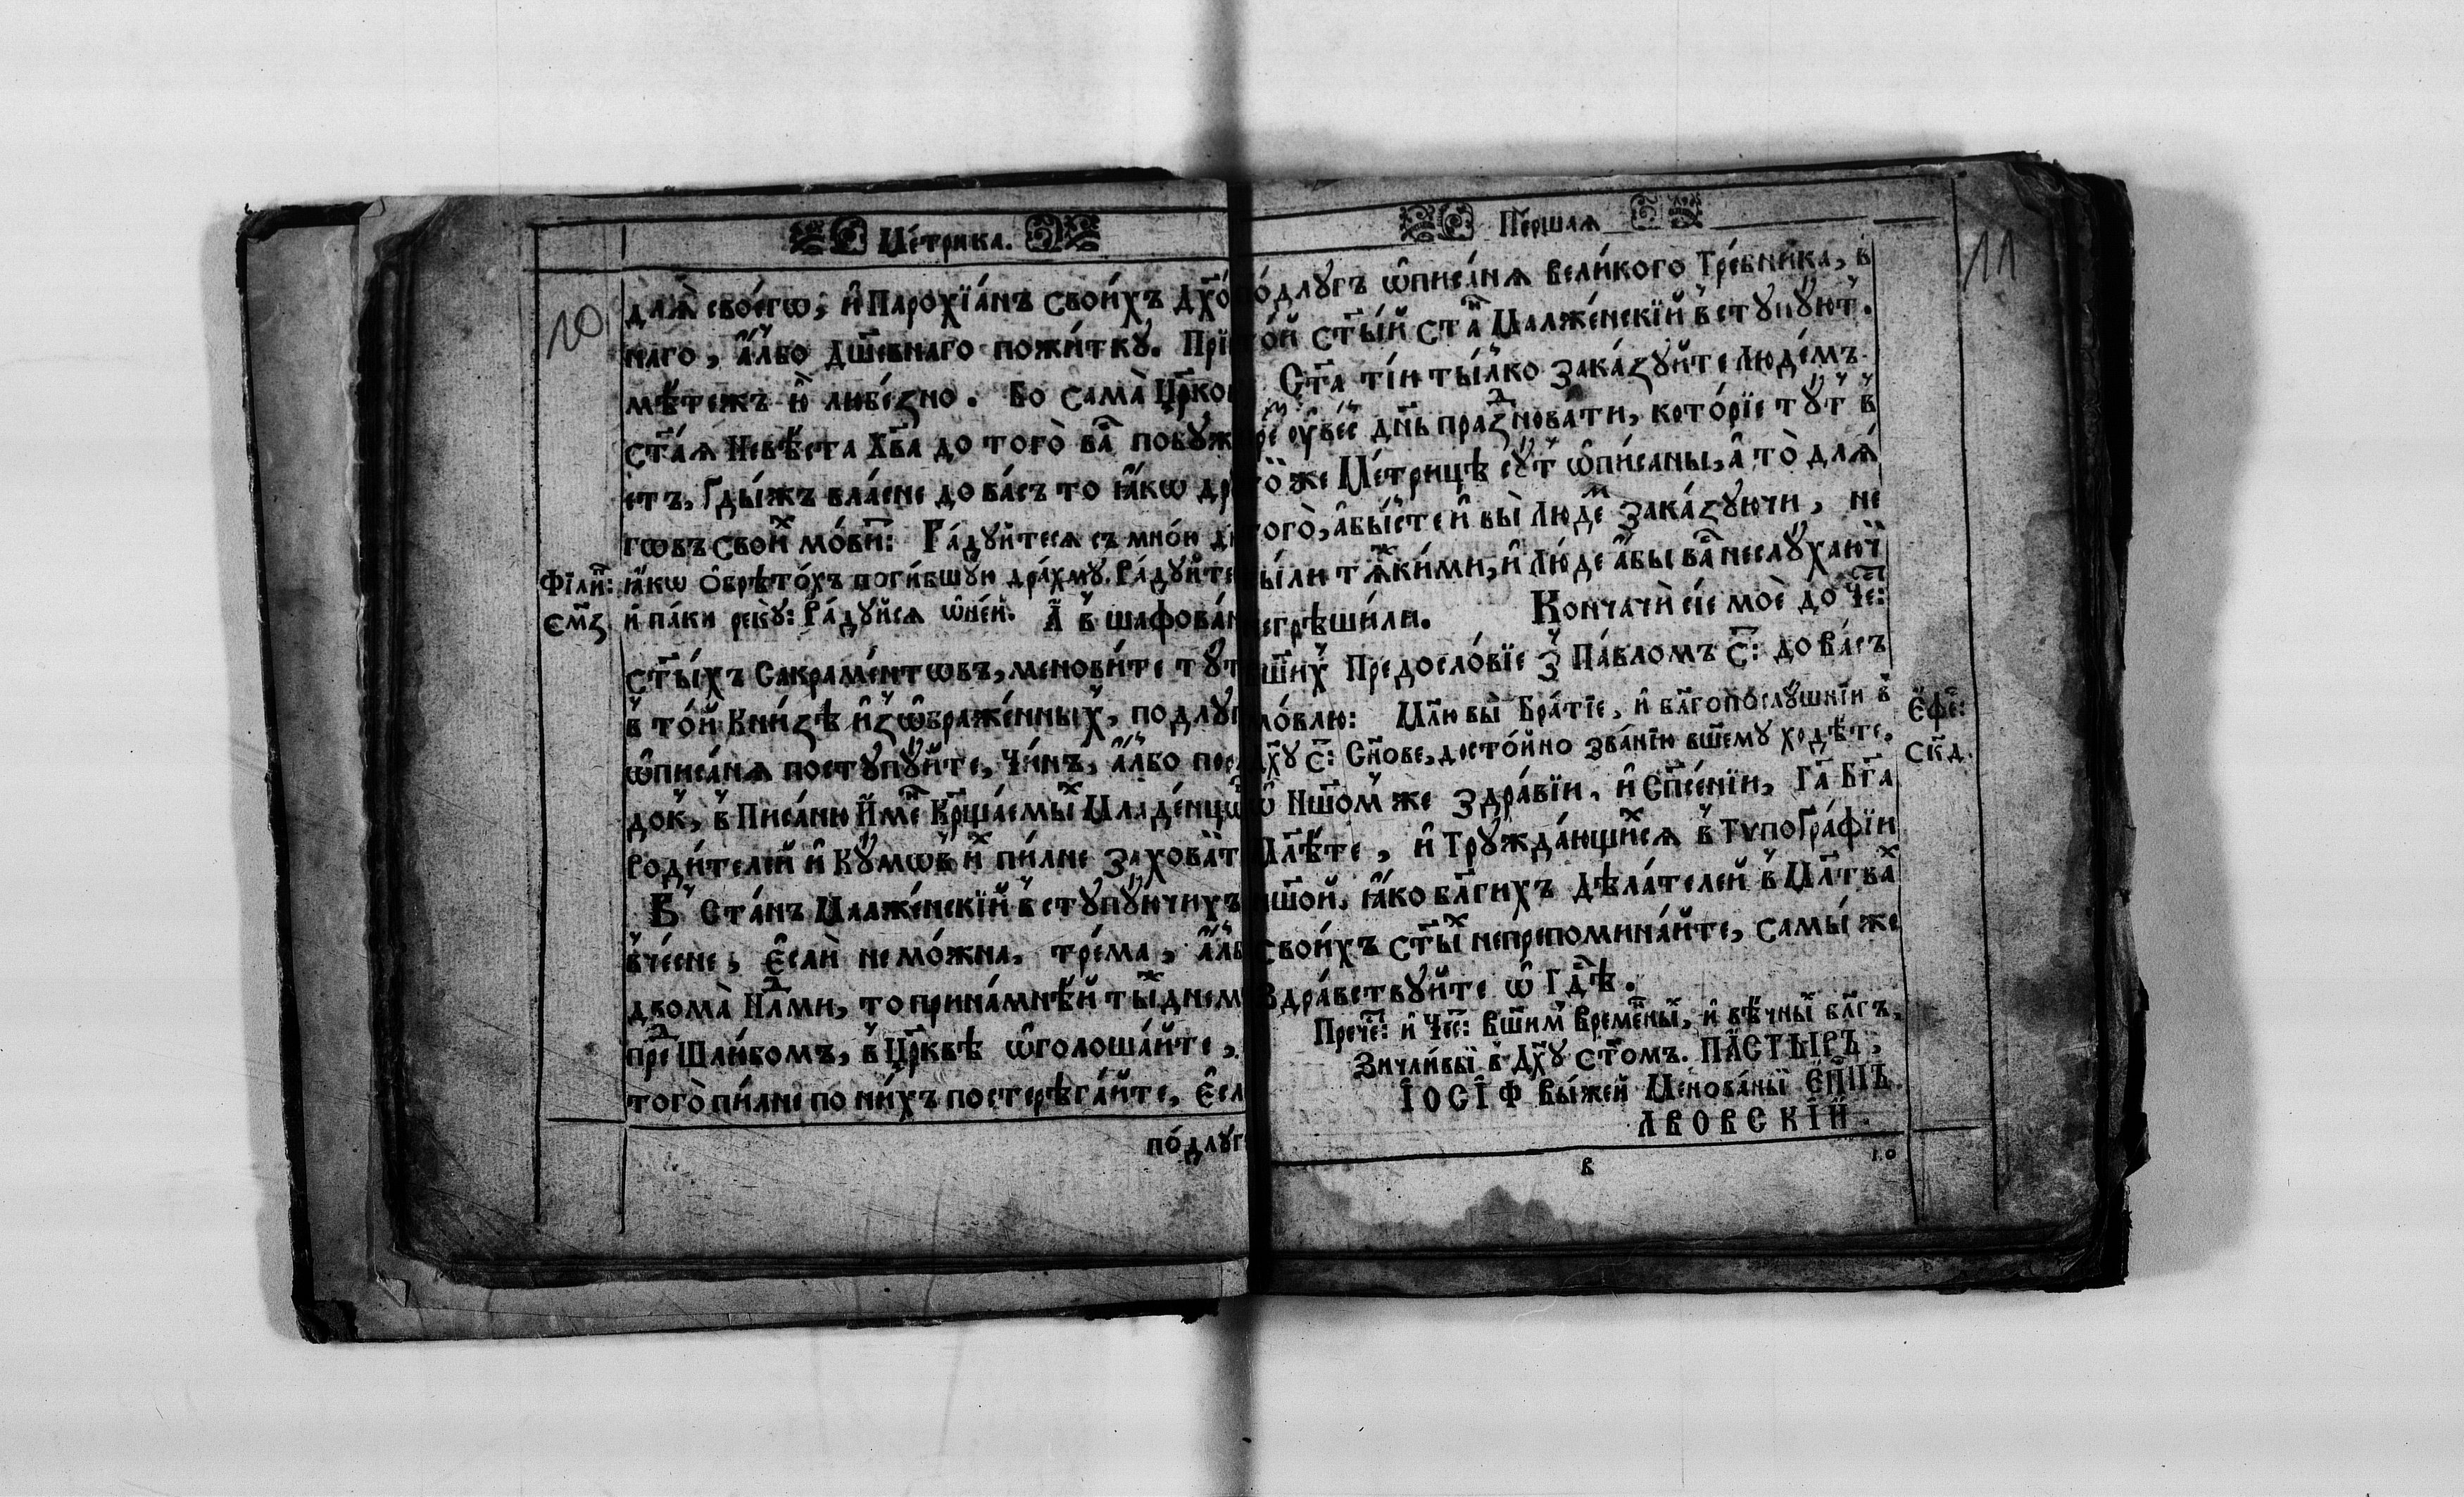 Метрика.
10
для своегѡ, и Парохїанъ своихъ дх҃о
наго, албо дш҃евнаго пожитку. Прїи
мѣтежъ ю любезно. Бо сама Цр҃ков
ст҃ая Невѣста Хв҃а до того ва᷇ побуж
етъ, Гдыжъ власне до васъ то ꙗкѡ др
гѡвъ свои᷇ мови᷇: Радуйтеся съ мною
Филип᷇: ꙗкѡ ѡбрѣтохъ погибшую драхму. Радуйте
Єм҃ѕ. и паки реку: Радуйся ѡ ней. А в шафован
ст҃ыхъ Сакраментѡвъ, меновите тут
в той Книзѣ изѡбраженныхъ, подлуг
ѡписаня поступуйте, Чинъ, албо пор
док, в Писаню Имен Крщаемых Младенцѡ
Родителей и Кумѡв и᷇ пилне заховат
В Станъ Малженскїй вступуючихъ
вчесне, Єсли не можна, трема, алб
двома Нд҃лми, то принамнѣй ты᷇ днем
пре᷇ Шлюбомъ, в Цр҃квѣ ѡголошайте,
того пилне по нихъ постерѣгайте, Єсл
подлуг
Першая
11
подлугъ ѡписаня великого Требника, в
той ст҃ый ста᷇ Малженскїй вступуют.
Ст҃а тїи тылко заказуйте людемъ
увесь дн҃ь праздновати, которїе тут в
той же Метрицѣ сут ѡписаны, а то для
того, абысте и вы Люде᷇ заказуючи, не
были тѧжкими, и Люде абы ва᷇ неслухаючи
негрѣшили. Кончачи сїе мое до Чес᷇:
вш҃их Предословїе з Павломъ С҃: до васъ
мовлю: Млю вы Братїе, и бл҃гопослушнїи в
Єфес:
Дх҃у С҃: Сн҃ове, достойно званїю вш҃ему ходѣте.
ѡ Нш҃ом же здравїи, и Сп҃сенїи, Гд҃а Бг҃а
Мл҃ѣте, и Труждающи᷇ся в Типографїи
нш҃ой, ꙗко бл҃гихъ дѣлателей в Мл҃тва᷇
своихъ ст҃ы᷇ непрепоминайте, самы же
Здравствуйте ѡ Гд҃ѣ.
Преч᷇е: и Чес᷇: Вш҃им Временны᷇, и вѣчны᷇ бл҃гъ,
Зичливый в Дх҃у ст҃омъ. ПАСТЫРЪ,
ІОСІФ Выжей Менованый ЄПП҃Ъ
ЛВОВСКІЙ.
в